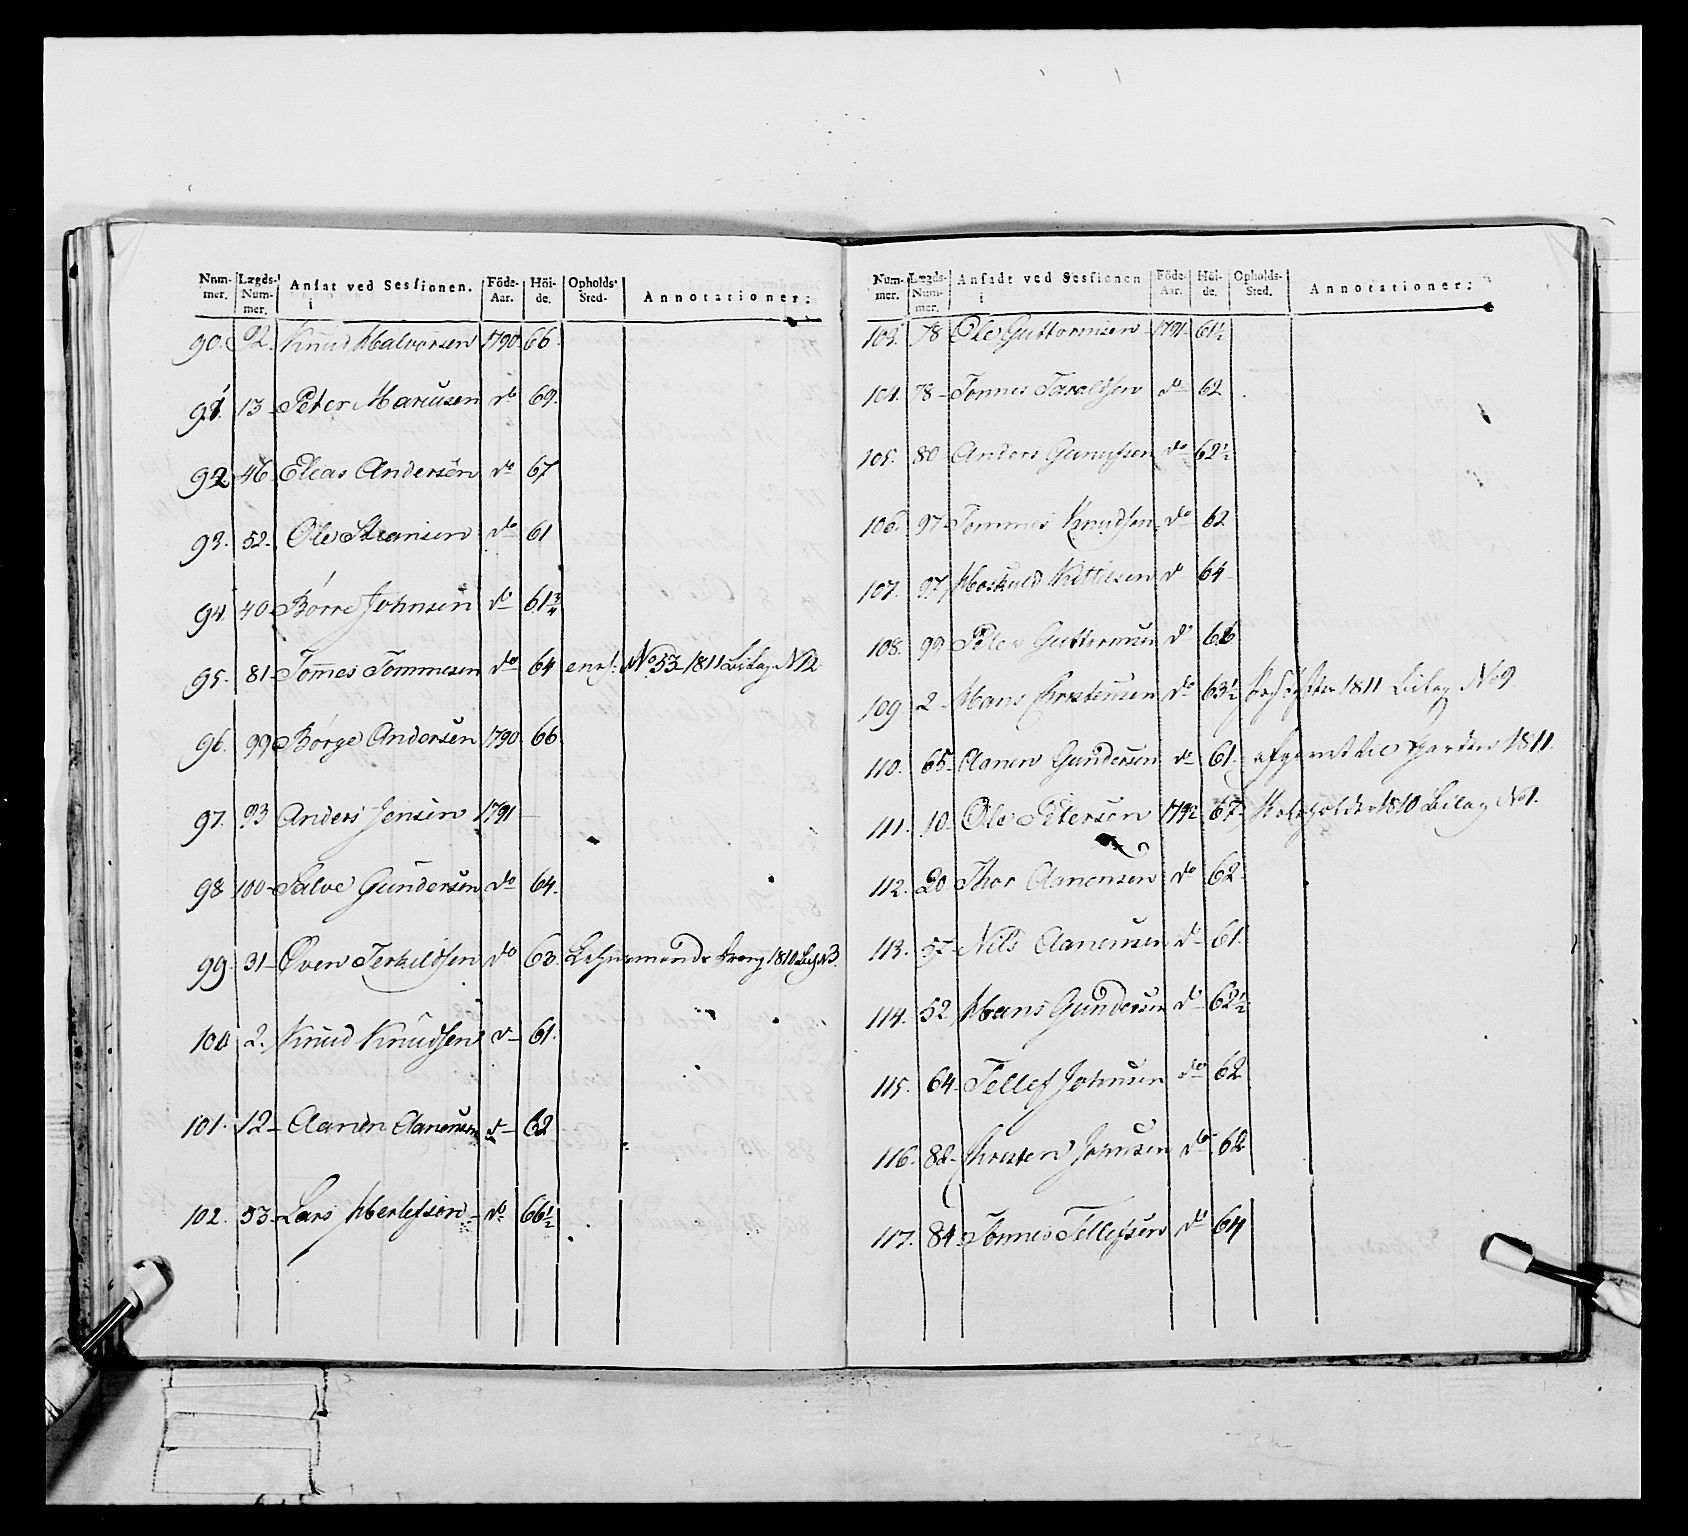 Num-mer. Lægds-Num-mer. Ansat ved Sessionen. i Föde-Aar. Höi-de. Opholds-Sted. Annotationer:
90. 92. Knud Halvorsen 1790 66.
91. 13 - Peter Mariusen do 69.
92 46 Elias Andersen do 67
93. 52. Ole Steansen do 61
94. 40 Börre Johnsen do 61 3/4
95. 81 - Tomes Tommesen do 64 No 53 1811 Bilag N 12
96. 99 Börge Andersen 1790 66
97. 93 Anders Jensen 1791 -
98 100 - Salve Gundersen do 64.
99. 31 - Oven Terkeldsen do 63. 1810 N 3.
100 2. Knud Knudsen d - 61.
101. 12 - Aanen Aanensen d - 62
102. 53 - Lars Herlefsen - do 66 1/2
Num-mer. Lægds-Num-mer. Ansadt ved Sessionen i Föde-Aar. Höi-de. Opholds-Sted. Annotationer:
103. 78 Ole Guttormsen 1791 61 1/2
104. 78 - Tönnes Taraldsen do 62
105. 80 Anders Gunufsen do 62 1/2
106. 97 Tommes Knudsen do 62
107. 97 Hoskuld Kittilsen d 64
108. 99 Peder Guttormsen do 66
109 2 - Hans Christensen do 63 1/2 1811 Bilag No 9
110. 65. Aanen Gundersen do 61. afgaaet til Garden 1811.
111. 10. Ole Petersen 1792 67 1810 Bilag No 1.
112. 20 Thor Aanensen do 62
113. 57 - Nils Aanensen d - 61.
114. 52. Hans Gundersen do 62 1/2
115. 64 - Tellef Johnsen do 62
116. 82 - Christen Johnsen do 62
117. 84. Tönnes Tellefsen do 64